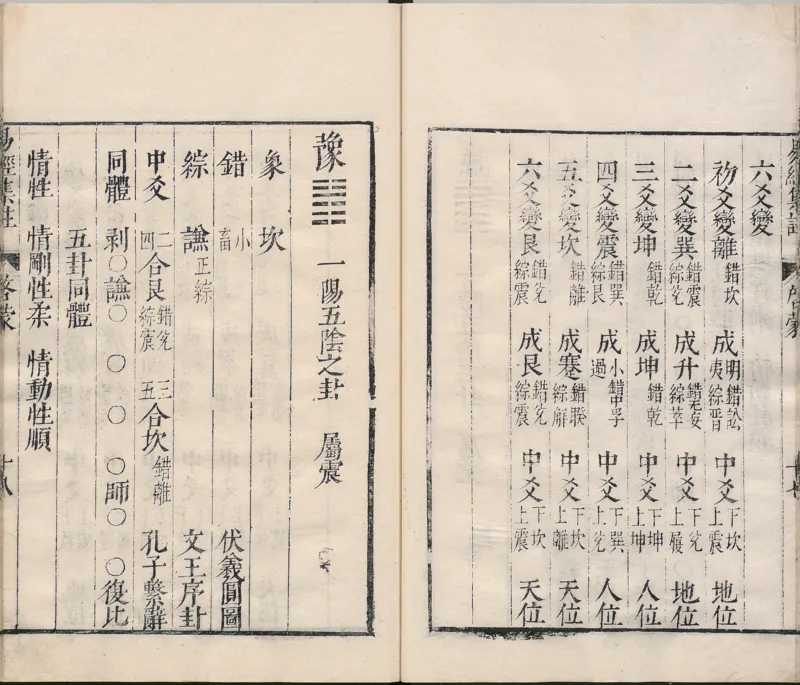 六爻變
初爻變離 錯坎 成明夷 錯訟 綜晋 中爻 下坎 上震 地位
二爻變巽 錯震 綜兊 成升 錯无妄 綜萃 中爻 下兊 上震 地位
三爻變坤 錯乾 成坤 錯乾 中爻 下坤 上坤 人位
四爻變震 錯巽 綜艮 成小過 錯中孚 中爻 下巽 上兊 人位
五爻變坎 錯離 成蹇 錯睽 綜解 中爻 下坎 上離 天位
六爻變艮 錯兊 綜震 成艮 錯兊 綜震 中爻 下坎 上震 天位
易經集註 啓蒙 十七
豫 一陽五陰之卦 屬震
象 坎
錯 小畜 伏羲圓圖
綜 謙 正綜 文王序卦
中爻 二四合艮 錯兊 綜震 三五合坎 錯離 孔子繫辭
同體 剥〇謙〇 〇 〇 〇師〇 〇復比
五卦同體
情性 情剛性柔 情動性順
易經集註 啓蒙 十八